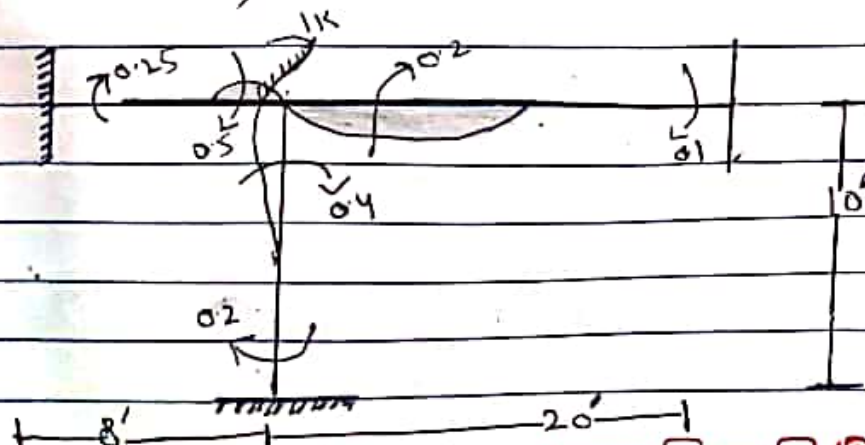 1K
0.25
0.2
0.5
0.1
0.4
0.2
8'
20'